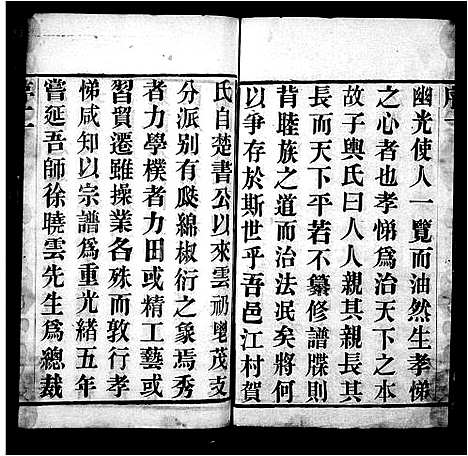 幽光使人一覽而油然生孝悌
之心者也孝悌為治天下之本
故子輿氏曰人人親其親長其
長而天下平若不纂修譜牒則
背睦族之道而治法泯矣將何
以爭存於斯世乎吾邑江村賀
氏自楚書公以來雲礽鼉茂支
分派别有瓞綿椒衍之象焉秀
者力學樸者力田或精工藝或
習貿遷雖操業各殊而敦行孝
悌咸知以宗譜為重光緒五年
嘗延吾師徐曉雲先生為總裁